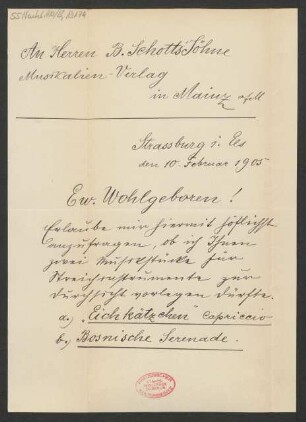 An Herren B. Schotts Söhne
Musikalien-Verlag
in Mainz
Strassburg i. Els
den 10. Februar 1905
Ew. Wohlgeboren!
Erlaube mir hiermit höflichst
anzufragen, ob ich Ihnen
zwei Musikstücke für
Streichinstrumente zur
Durchsicht vorlegen dürfte.
a.) "Eichkätzchen" Capriccio
b.) Bosnische Serenade.